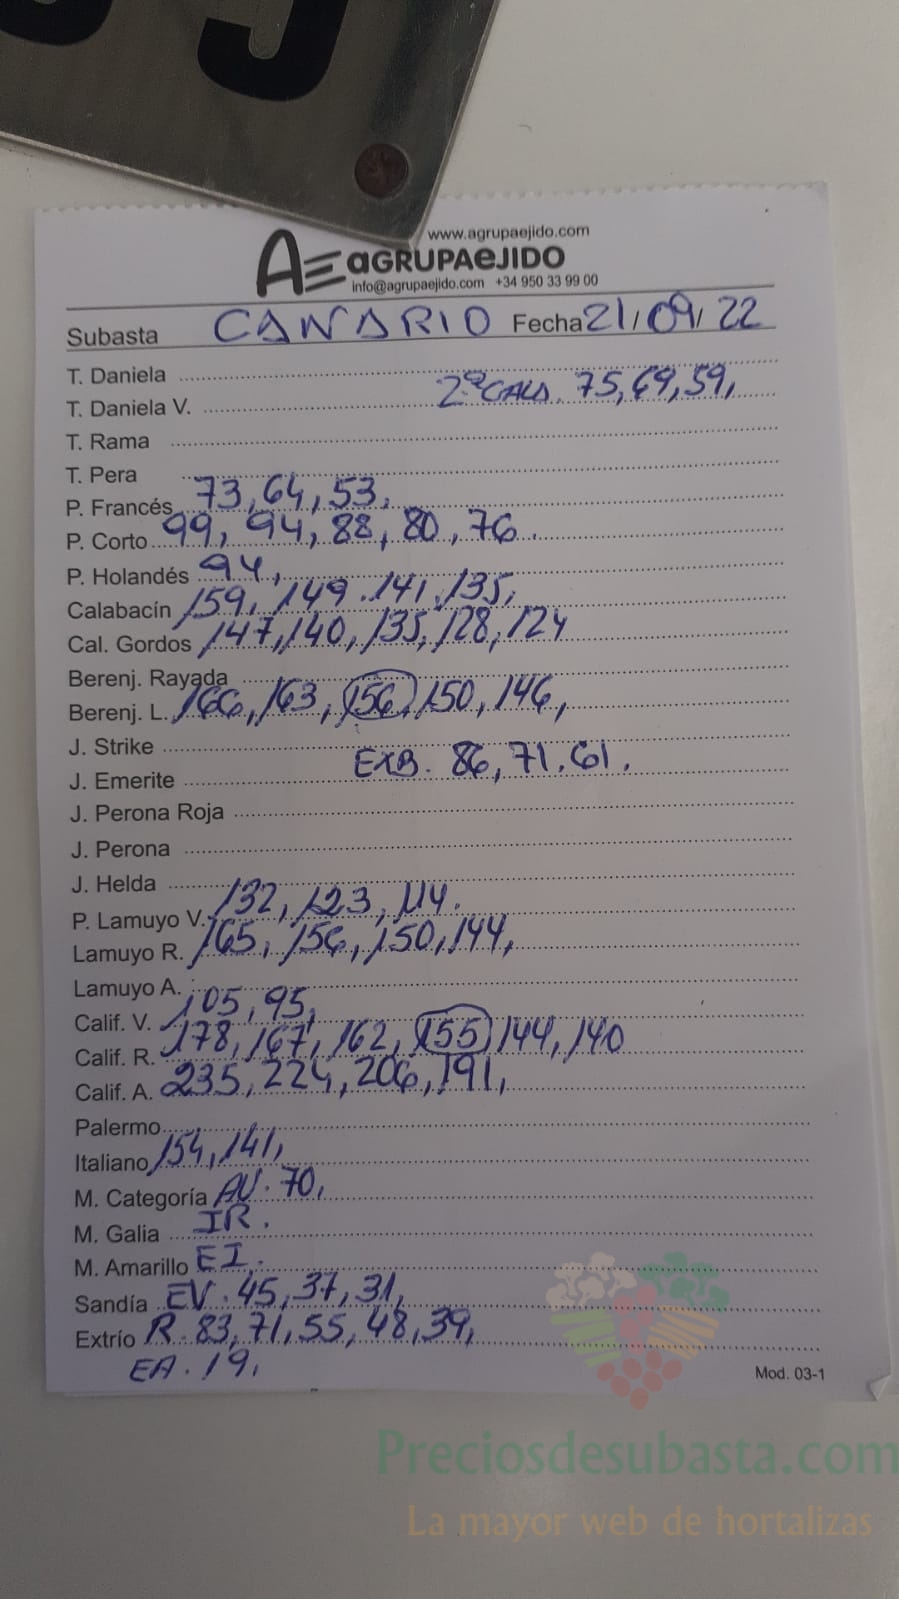 www.agrupaejido.com
AGRUPAEJIDO
info@agrupaejido.com +34 950 33 99 00
Subasta CANARIO Fecha 21/09/22
T. Daniela
T. Daniela V. 2ª CALA. 75, 69, 59,
T. Rama
T. Pera
P. Francés 73, 64, 53,
P. Corto 99, 94, 88, 80, 76.
P. Holandés 94,
Calabacín 159, 149. 141, 135,
Cal. Gordos 147, 140, 135, 128, 124
Berenj. Rayada
Berenj. L. 166, 163, 156, 150, 146,
J. Strike
J. Emerite EXB. 86, 71, 61.
J. Perona Roja
J. Perona
J. Helda
P. Lamuyo V. 132, 123, 114.
Lamuyo R. 165, 156, 150, 144,
Lamuyo A.
Calif. V. 105, 95,
Calif. R. 178, 167, 162, 155 144, 140
Calif. A. 235, 224, 206, 191,
Palermo
Italiano 154, 141,
M. Categoría AV. 70,
M. Galia IR.
M. Amarillo EI.
Sandía EV. 45, 37, 31,
Extrío R. 83, 71, 55, 48, 39,
EA. 19.
Mod. 03-1
Preciosdesubasta.com
La mayor web de hortalizas